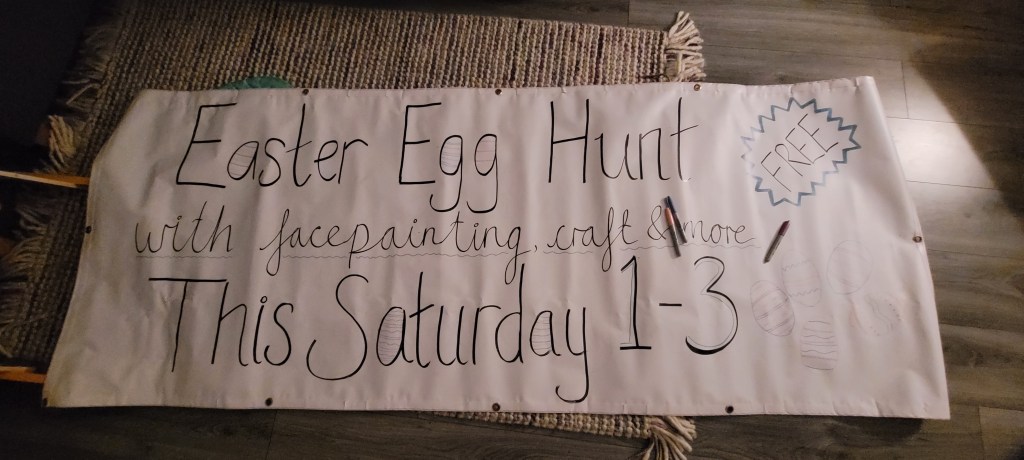 Easter Egg Hunt
FREE
with facepainting, craft & more
This Saturday 1-3